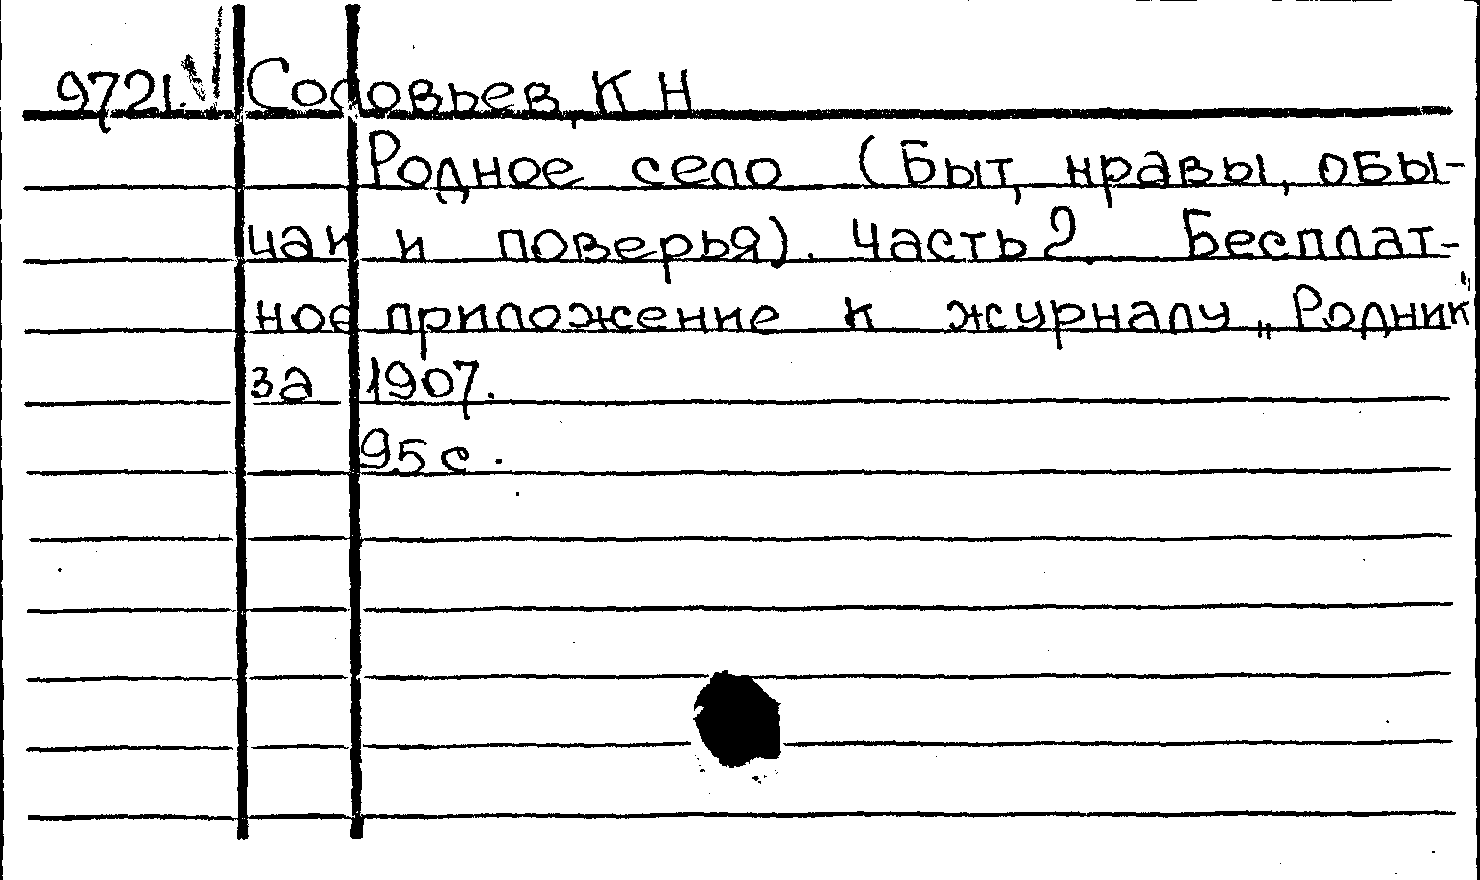 9721. Соловьев, К Н
Родное село (Быт, нравы, обы-
чаи и поверья). Часть 2. Бесплат-
ное приложение к журналу „Родник"
за 1907.
95 с.